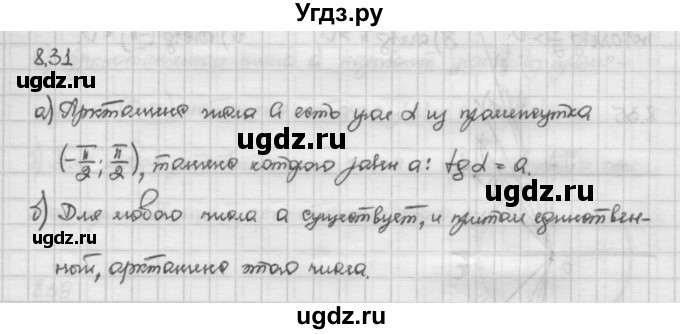 Угдз.ру
8.31
а) Арктангенс числа a есть угол α из промежутка
(-π/2; π/2), тангенс которого равен a: tg α = a.
б) Для любого числа a существует, и притом единствен-
ный, арктангенс этого числа.
ugdz.ru
ugdz.ru
ugdz.ru
ugdz.ru
ugdz.ru
ugdz.ru
ugdz.ru
ugdz.ru